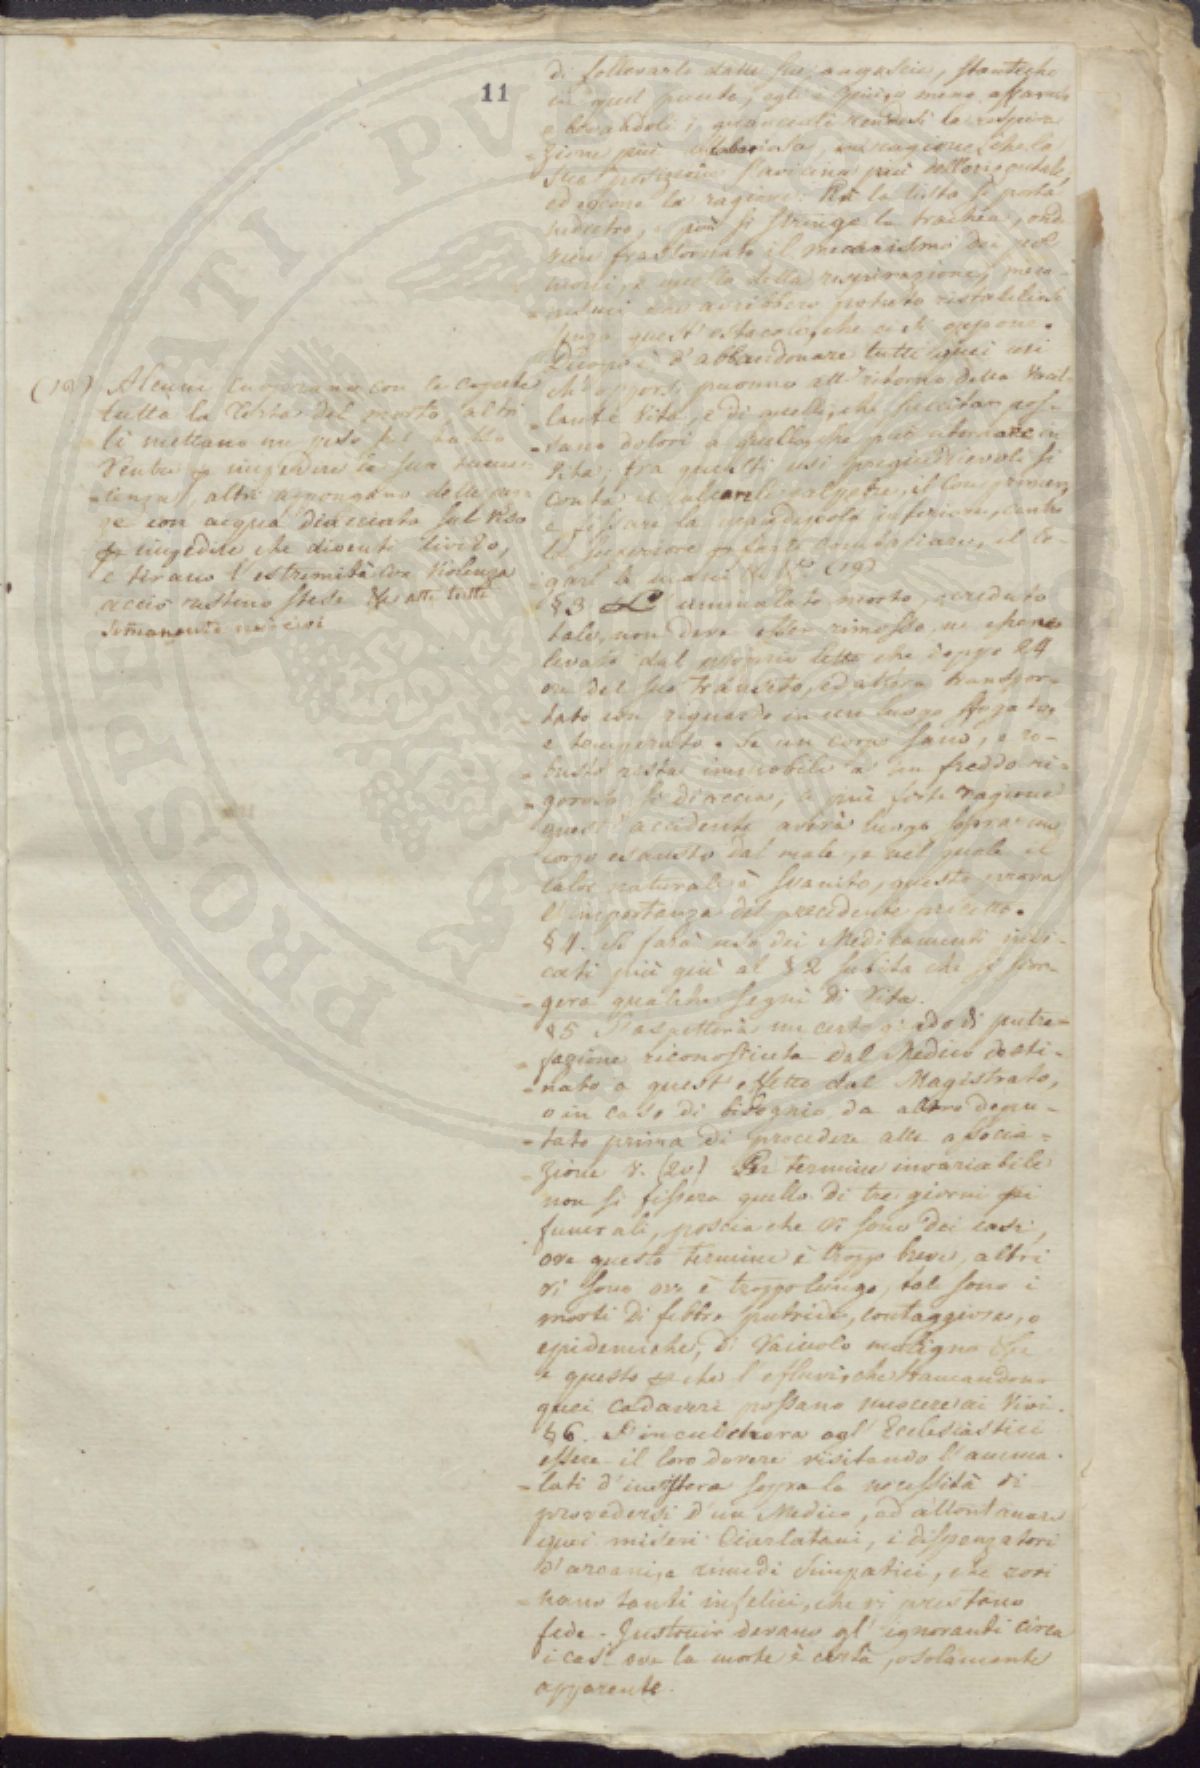 11
di sollevarlo dalle sue angoscie, stanteché
in quel punto, egli è
i guanciali rendesi la respira
=zione più in ragione che la
sua posizione s'avicina più dell'orizontale,
ed eccone la ragione: Più la testa si porta
indietro, e più si stringe la trachea, ond
vien frastornato il mecanismo dei pol
moni, e quello della respirazione, meca-
=nismi che avrebbero potuto ristabilirsi
senza quest'ostacolo, che ci si oppone.
D'uopo è d'abbandonare tutti quei usi
ch'opporsi puonno all' ritorno della vacil-
=lante vita, e di quelli, che suscitar pos-
=sano dolori a quello, che può ritornare in
vita; fra questi usi pregiudicievoli si
conta il il comprimer,
e fissare la mandipola inferiore, contro
la superiore il le-
=gare le mani &c. (19)
§3 L'ammalato morto, o creduto
tale, non deve esser rimosso, ne
levato dal proprio letto che doppo 24
ore del suo transito, ed allora transpor-
=tato con riguardo in un luogo sfogato,
e temperato. Se un corpo sano, e ro-
=busto resta immobile a un freddo ri-
=goroso si diaccia; a più forte ragione
quest'accidente averà luogo sopra un
corpo esausto dal male, e nel quale il
calor naturale è svanito, questo prova
l'importanza del precedente precetto.
§4. Si farà uso dei Medicamenti indi-
cati più giù al §2 subito che si scor-
=gera qualche segni di Vita.
§5 S'aspetterà un certo grado di putre-
=fazione riconosciuta dal Medico desti-
=nato a quest'effetto dal Magistrato,
o in caso di bisognio da altro depu-
=tato prima di procedere alle associa=
=zione V. (20) Per termine invariabile
non si fissera quello di tre giorni pei
funerali, poscia che vi sono dei casi,
ove questo termine è troppo breve, altri
vi sono ove è troppo lungo, tal sono i
morti di febbre putride, contaggiose, o
epidemiche, di Vaiuolo maligno &c
e questo che l'efluvi, che tramandono
quei cadaveri possano nuocere ai Vivi.
§6. S'inculchera agl'Eclesiastici
essere il loro dovere visitando l'amma-
=lati d'insistera sopra la necessità di
provedersi d'un Medico, ad allontanare
quei miseri Ciarlatani, i dispenzatori
d'arcani, e rimedi Simpatici, che rovi
=nano tanti infelici, che vi prestano
fede. Instruir devano gl'ignoranti circa
i casi ove la morte è certa, o solamente
apparente.
(19) Alcuni cuoprano con le coperte
tutta la testa del morto, altri
li mettano un peso sul basso
Ventre impedire la sua tumes-
=cenza, altri appongano delle
con acqua diacciata sul viso
impedire che diventi livido,
e tirano l'estremità con violenza
accio restino stese
PROSPERITATI PVBLICAE